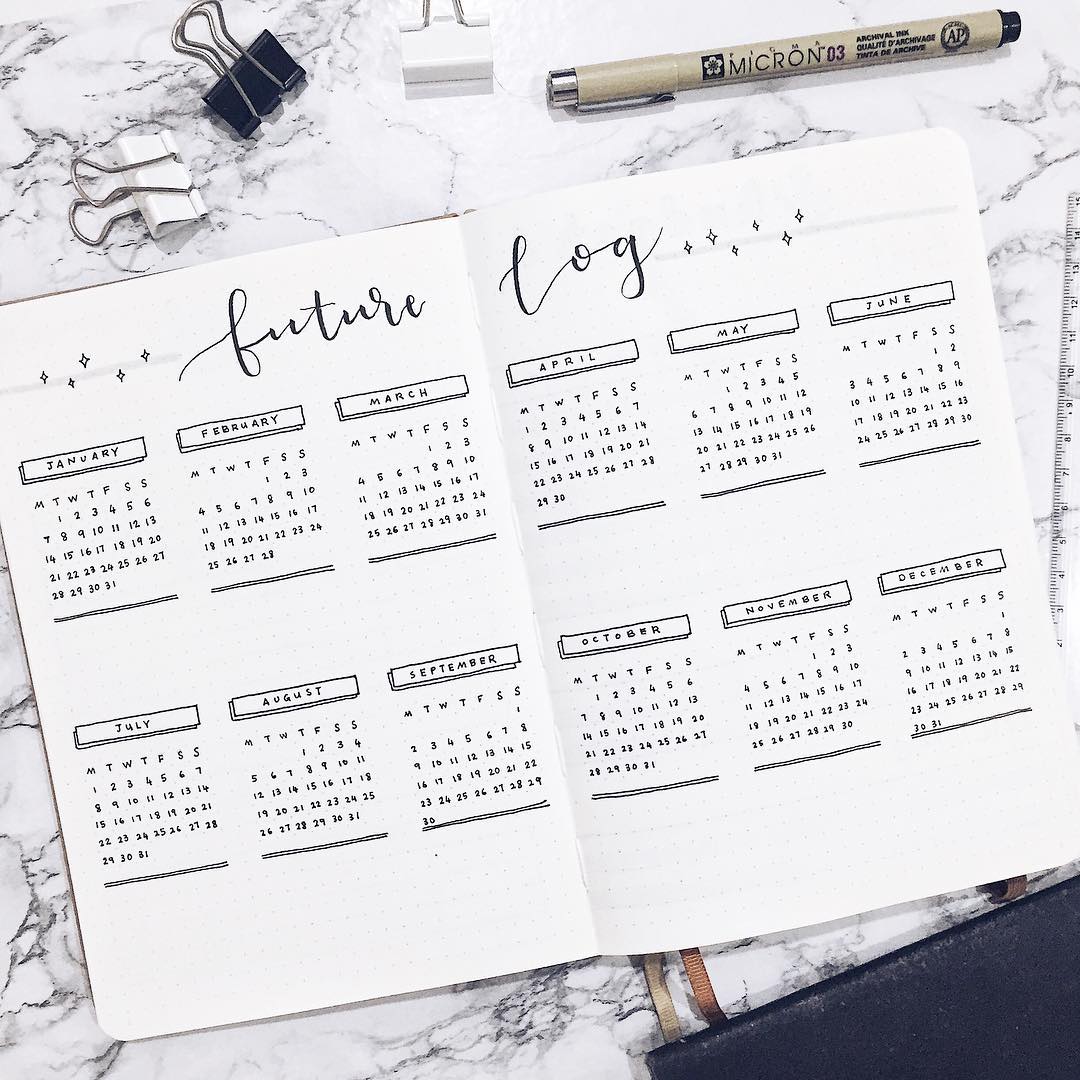 PIGMA
MICRON 03
ARCHIVAL INK
QUALITÉ D'ARCHIVAGE
TINTA DE ARCHIVE
AP
future log
JANUARY
M T W T F S S
1 2 3 4 5 6
7 8 9 10 11 12 13
14 15 16 17 18 19 20
21 22 23 24 25 26 27
28 29 30 31
FEBRUARY
M T W T F S S
1 2 3
4 5 6 7 8 9 10
11 12 13 14 15 16 17
18 19 20 21 22 23 24
25 26 27 28
MARCH
M T W T F S S
1 2 3
4 5 6 7 8 9 10
11 12 13 14 15 16 17
18 19 20 21 22 23 24
25 26 27 28 29 30 31
JULY
M T W T F S S
1 2 3 4 5 6 7
8 9 10 11 12 13 14
15 16 17 18 19 20 21
22 23 24 25 26 27 28
29 30 31
AUGUST
M T W T F S S
1 2 3 4
5 6 7 8 9 10 11
12 13 14 15 16 17 18
19 20 21 22 23 24 25
26 27 28 29 30 31
SEPTEMBER
M T W T F S S
1
2 3 4 5 6 7 8
9 10 11 12 13 14 15
16 17 18 19 20 21 22
23 24 25 26 27 28 29
30
APRIL
M T W T F S S
1 2 3 4 5 6 7
8 9 10 11 12 13 14
15 16 17 18 19 20 21
22 23 24 25 26 27 28
29 30
MAY
M T W T F S S
1 2 3 4 5
6 7 8 9 10 11 12
13 14 15 16 17 18 19
20 21 22 23 24 25 26
27 28 29 30 31
JUNE
M T W T F S S
1 2
3 4 5 6 7 8 9
10 11 12 13 14 15 16
17 18 19 20 21 22 23
24 25 26 27 28 29 30
OCTOBER
M T W T F S S
1 2 3 4 5 6
7 8 9 10 11 12 13
14 15 16 17 18 19 20
21 22 23 24 25 26 27
28 29 30 31
NOVEMBER
M T W T F S S
1 2 3
4 5 6 7 8 9 10
11 12 13 14 15 16 17
18 19 20 21 22 23 24
25 26 27 28 29 30
DECEMBER
M T W T F S S
1
2 3 4 5 6 7 8
9 10 11 12 13 14 15
16 17 18 19 20 21 22
23 24 25 26 27 28 29
30 31